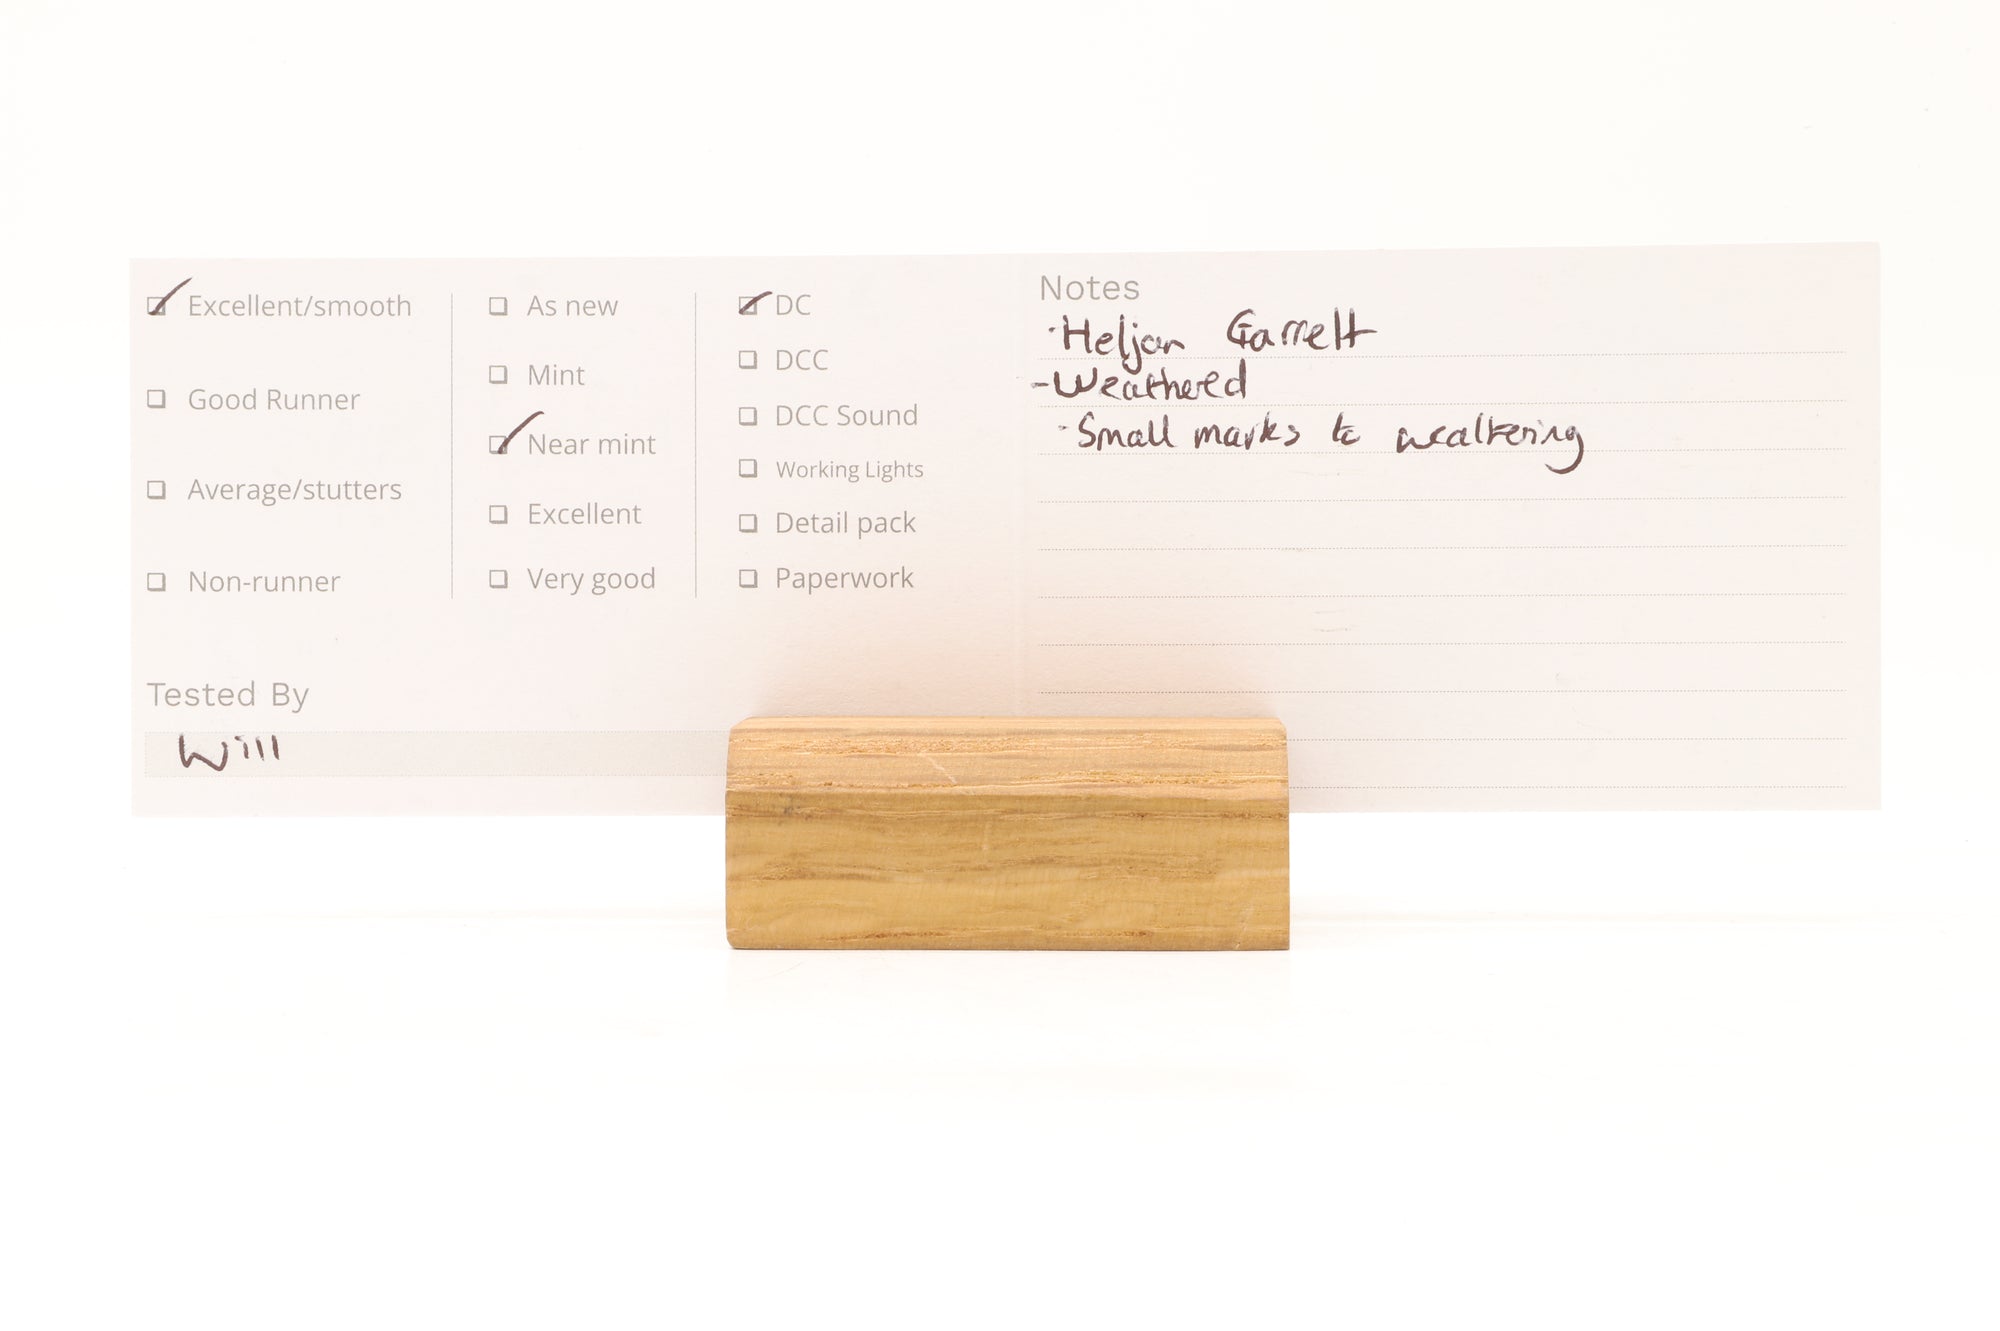 Excellent/smooth
Good Runner
Average/stutters
Non-runner
As new
Mint
Near mint
Excellent
Very good
DC
DCC
DCC Sound
Working Lights
Detail pack
Paperwork
Tested By
Will
Notes
·Heljan Garrett
-Weathered
·Small marks to weathering